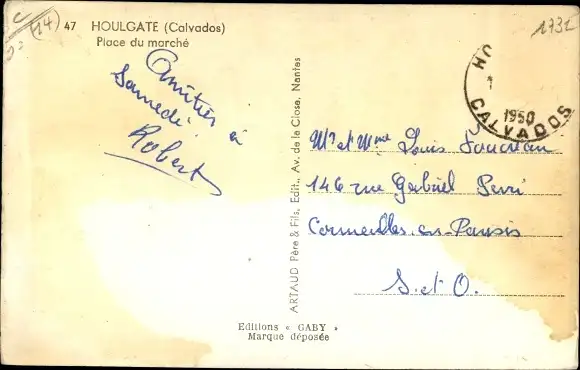 C
(14)
47 HOULGATE (Calvados)
Place du marché
1731
Amitiés à
Samedi.
Robert
HO
1
1950
CALVADOS
ARTAUD Père & Fils, Edit., Av. de la Close, Nantes
Mr et Mme Louis
146 rue Gabriel Peri
Cormeilles-en-Parisis
S. et O.
Editions « GABY »
Marque déposée